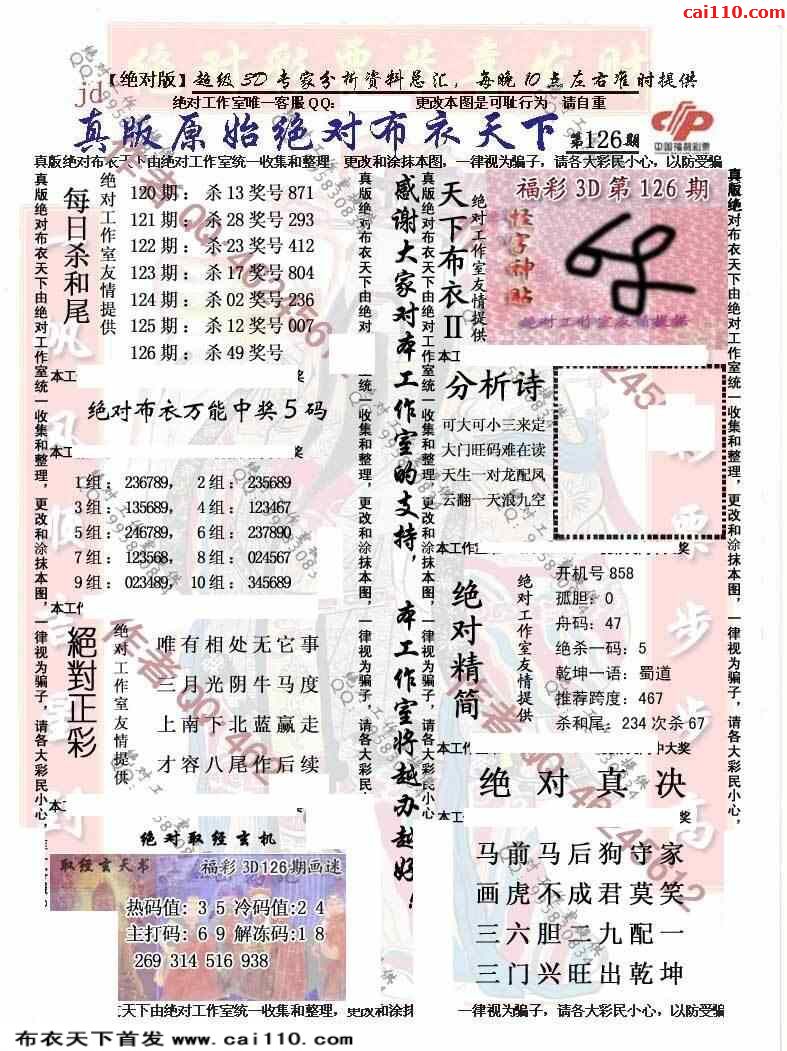 cai110.com
【绝对版】超级3D专家分析资料总汇，每晚10点左右准时提供
jd
绝对工作室唯一客服QQ: 更改本图是可耻行为 请自重
真版原始绝对布衣天下 第126期
中国福利彩票
真版绝对布衣天下由绝对工作室统一收集和整理，更改和涂抹本图，一律视为骗子，请各大彩民小心，以防受骗
每日杀和尾
绝对工作室友情提供
120期：杀13奖号871
121期：杀28奖号293
122期：杀23奖号412
123期：杀17奖号804
124期：杀02奖号236
125期：杀12奖号007
126期：杀49奖号
绝对布衣万能中奖5码
1组：236789， 2组：235689
3组：135689， 4组：123467
5组：246789， 6组：237890
7组：123568， 8组：024567
9组：023489， 10组：345689
絕對正彩
绝对工作室友情提供
唯有相处无它事
三月光阴牛马度
上南下北蓝赢走
才容八尾作后续
绝对取经玄机
取经玄天书 福彩3D126期画迷
热码值: 3 5 冷码值:2 4
主打码: 6 9 解冻码:1 8
269 314 516 938
感谢大家对本工作室的支持，本工作室将越办越好！
天下布衣II
绝对工作室友情提供
福彩3D第126期
怪字神贴
绝对工作室友情提供
分析诗
可大可小三来定
大门旺码难在读
天生一对龙配凤
云翻一天浪九空
绝对精简
绝对工作室友情提供
开机号858
孤胆：0
舟码：47
绝杀一码：5
乾坤一语：蜀道
推荐跨度：467
杀和尾：234次杀67
绝对真决
马前马后狗守家
画虎不成君莫笑
三六胆二九配一
三门兴旺出乾坤
天下由绝对工作室统一收集和整理，更改和涂抹
一律视为骗子，请各大彩民小心，以防受骗
布衣天下首发 www.cai110.com